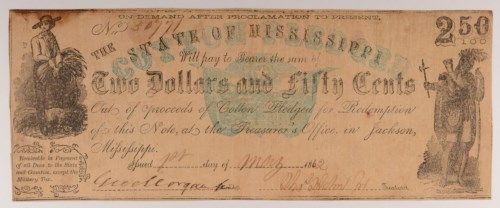 ON DEMAND AFTER PROCLAMATION TO PRESENT,
No.
THE STATE OF MISSISSIPPI
250
100
Will pay to Bearer the sum of
Two Dollars and Fifty Cents
Out of proceeds of Cotton Pledged for Redemption
of this Note, at the Treasurer's Office, in Jackson,
Mississippi.
Issued 1st day of May 1862
Receivable in Payment
of all Dues to the State
and Counties, except the
Military Tax.